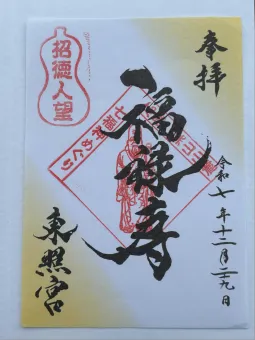 奉拝
招徳人望
福禄寿
七福神めぐり
令和七年十二月二十九日
東照宮